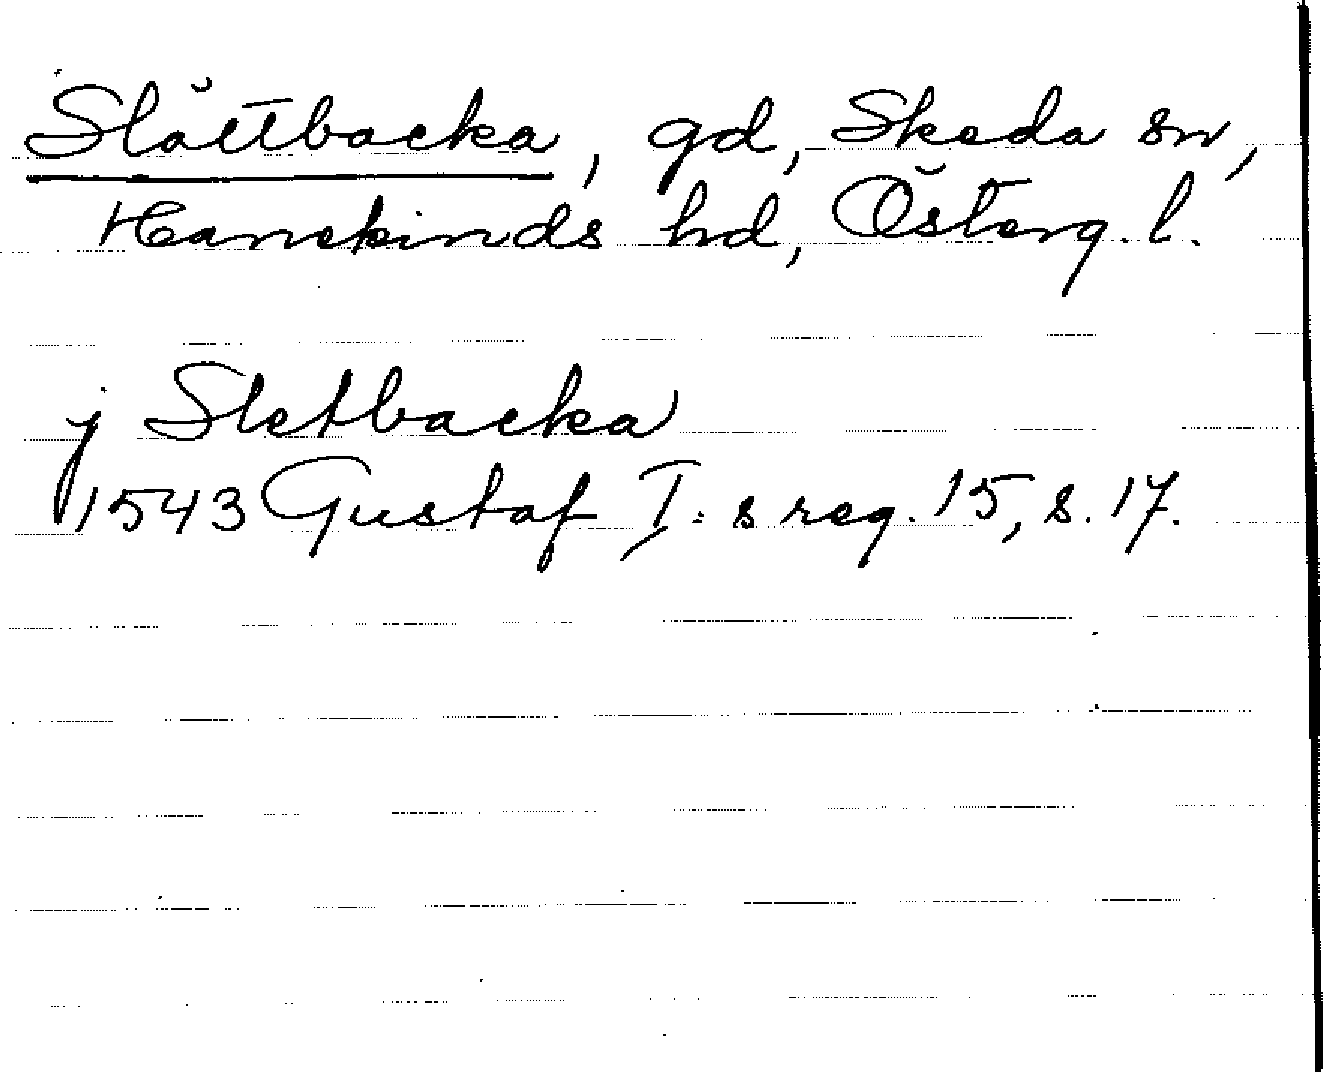 Slättbacka, gd, Skeda sn,
Hanekinds hd, Österg. l.
j Sletbacka
1543 Gustaf I:s reg. 15, s. 17.